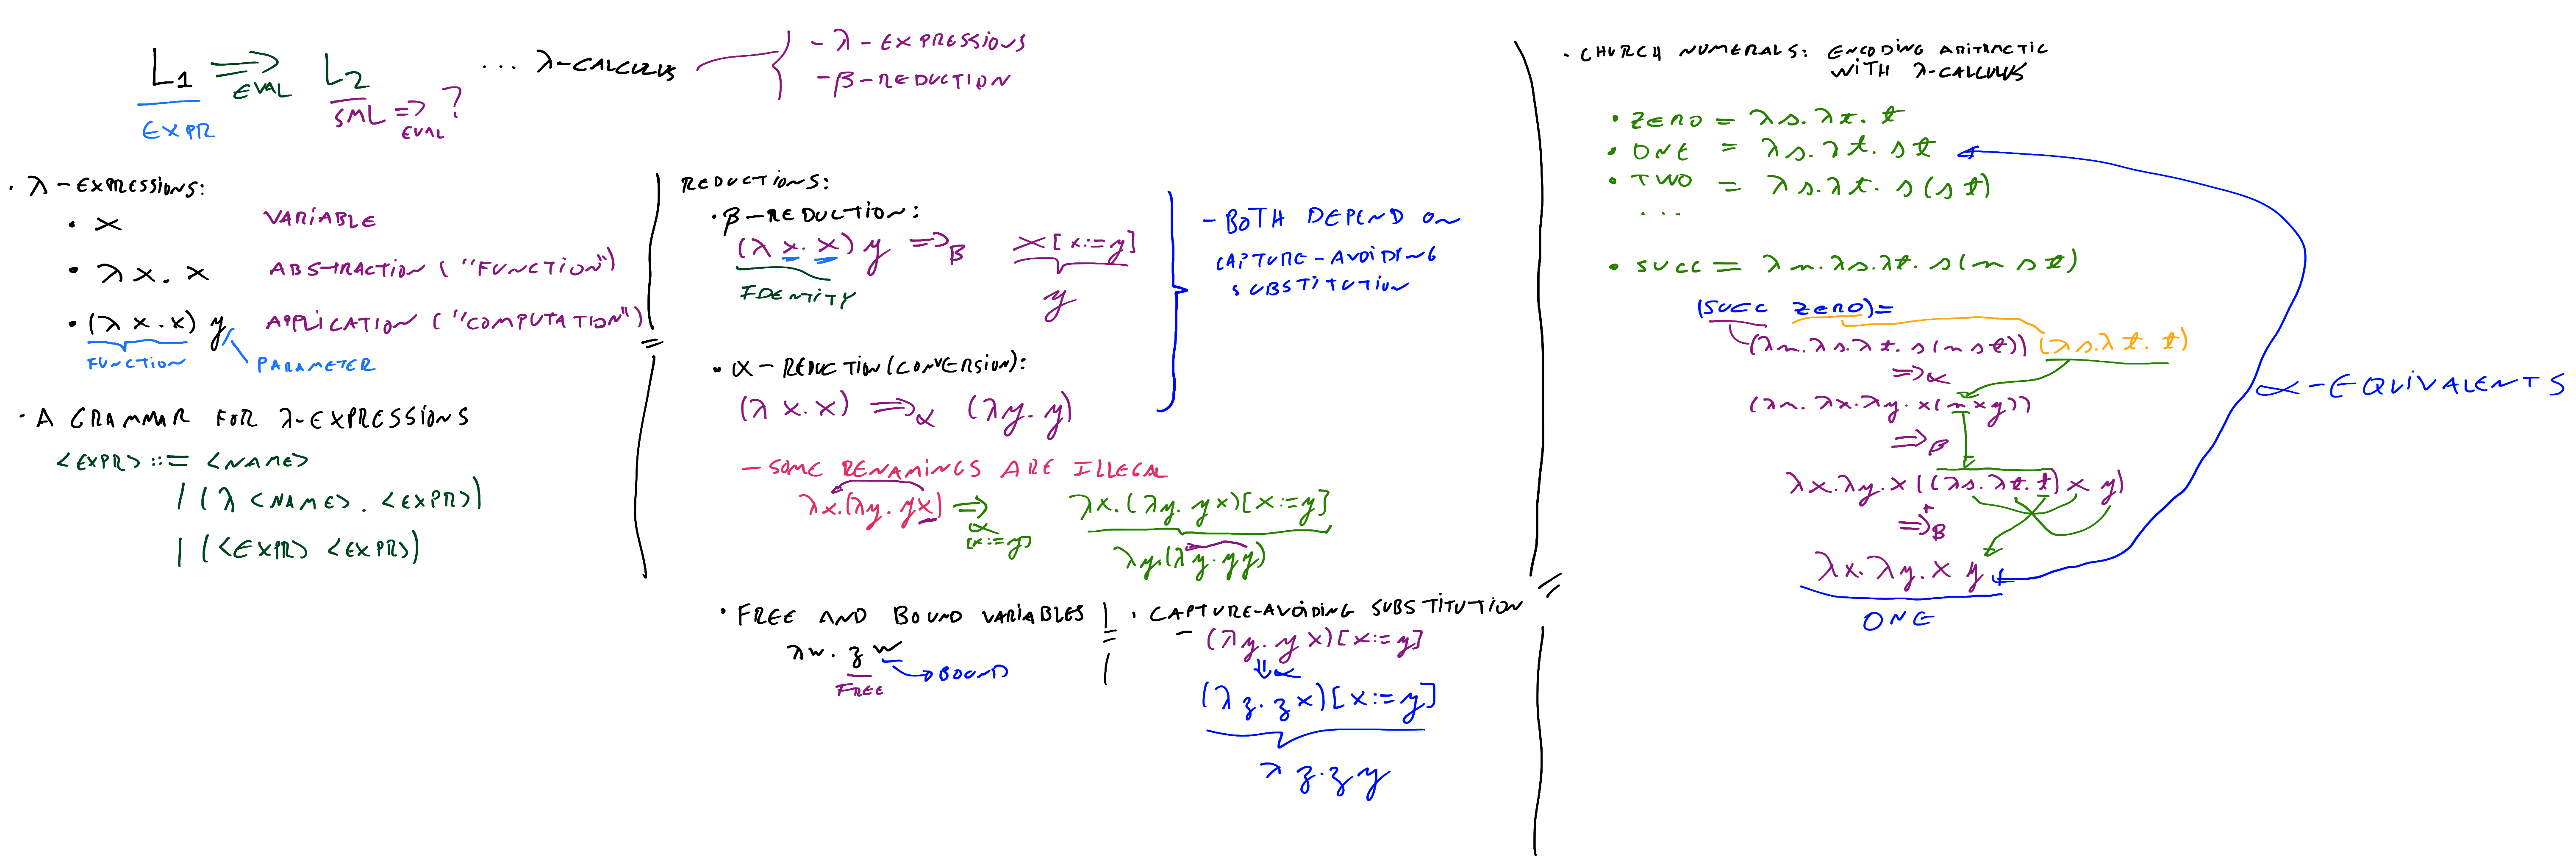 L1 ⇒ L2 ... λ-CALCULUS
EVAL
EXPR
SML ⇒ ?
EVAL
- λ-EXPRESSIONS
- β-REDUCTION
· λ-EXPRESSIONS:
• x VARIABLE
• λx.x ABSTRACTION ("FUNCTION")
• (λx.x) y APPLICATION ("COMPUTATION")
FUNCTION PARAMETER
· A GRAMMAR FOR λ-EXPRESSIONS
<EXPR> ::= <NAME>
| (λ <NAME>. <EXPR>)
| (<EXPR> <EXPR>)
REDUCTIONS:
· β-REDUCTION:
(λx.x) y ⇒β x[x:=y]
IDENTITY y
• α-REDUCTION (CONVERSION):
(λx.x) ⇒α (λy.y)
- BOTH DEPEND ON
CAPTURE-AVOIDING
SUBSTITUTION
- SOME RENAMINGS ARE ILLEGAL
λx.(λy.yx) ⇒α λx.(λy.yx)[x:=y]
[x:=y]
λy.(λy.yy)
· FREE AND BOUND VARIABLES
λw.z w
FREE BOUND
· CAPTURE-AVOIDING SUBSTITUTION
- (λy.y x)[x:=y]
⇓α
(λz.z x)[x:=y]
λz.z y
· CHURCH NUMERALS: ENCODING ARITHMETIC
WITH λ-CALCULUS
• ZERO = λs.λt.t
• ONE = λs.λt.st
• TWO = λs.λt.s(st)
...
• SUCC = λn.λs.λt.s(n s t)
(SUCC ZERO)=
(λn.λs.λt.s(n s t)) (λs.λt.t)
⇒α
(λn.λx.λy.x(n x y))
⇒β
λx.λy.x((λs.λt.t) x y)
⇒β+
λx.λy.x y
ONE
α-EQUIVALENTS